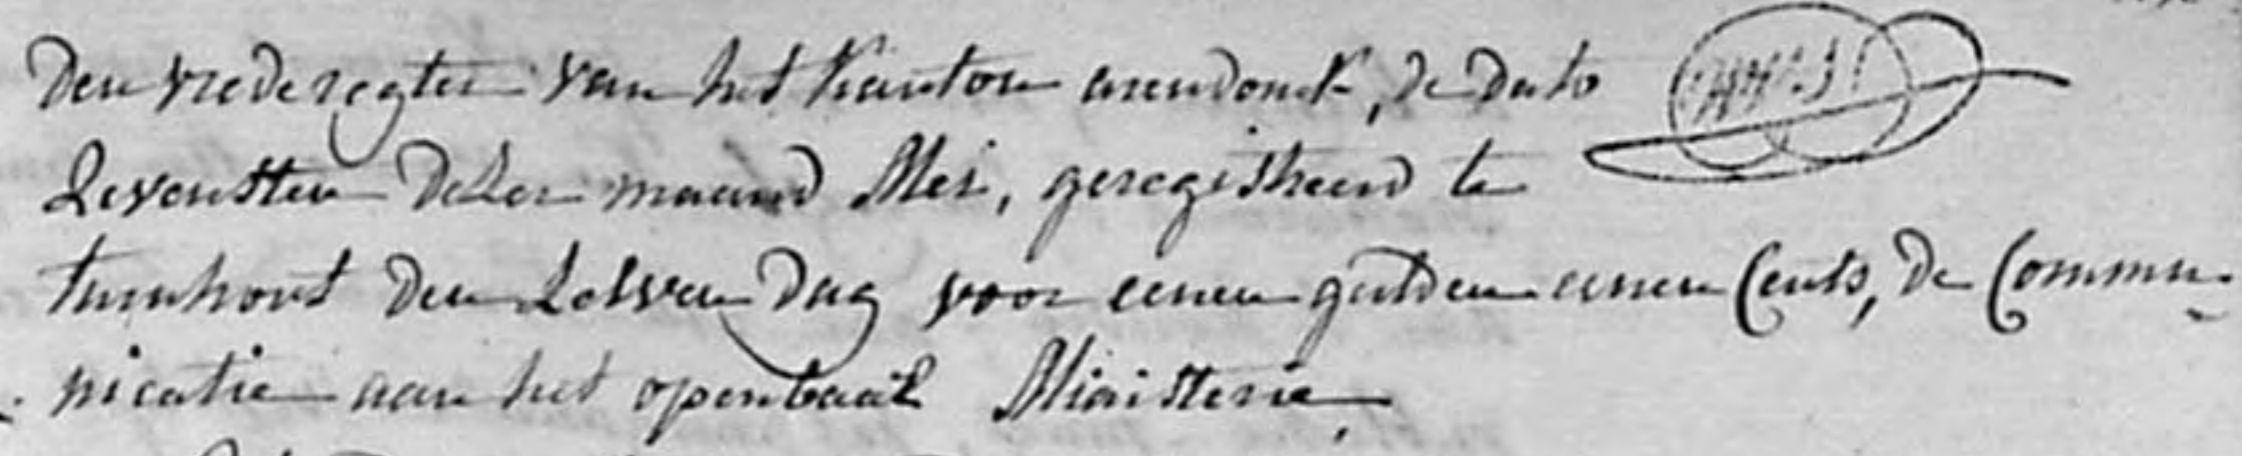 den vrederegter van het kanton arendonk, de dato
Zevensten dezer maand Mei, geregistreerd te
turnhout den Zelven dag voor eenen gulden eenen Cents, de Commu-
nicatie aan het openbaar Ministerie,